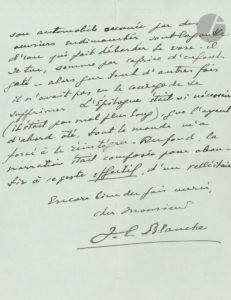 son automobile
ouvriers endimanchés sont la goutte
d'eau qui fait déborder le vase - il
se tue, comme par caprice d'enfant
gâté - alors que tant d'autres fois
il n'avait pas eu le courage de se
supprimer. L'Epilogue était si nécessaire
(il était pas mal plus long) que l'ayant
d'abord ôté, tout le monde m'a
forcé à le réintégrer. Au fond, la
narration était composée pour
à ce geste effectif, d'un velléitaire
Encore une fois merci,
cher Monsieur
J-E Blanche